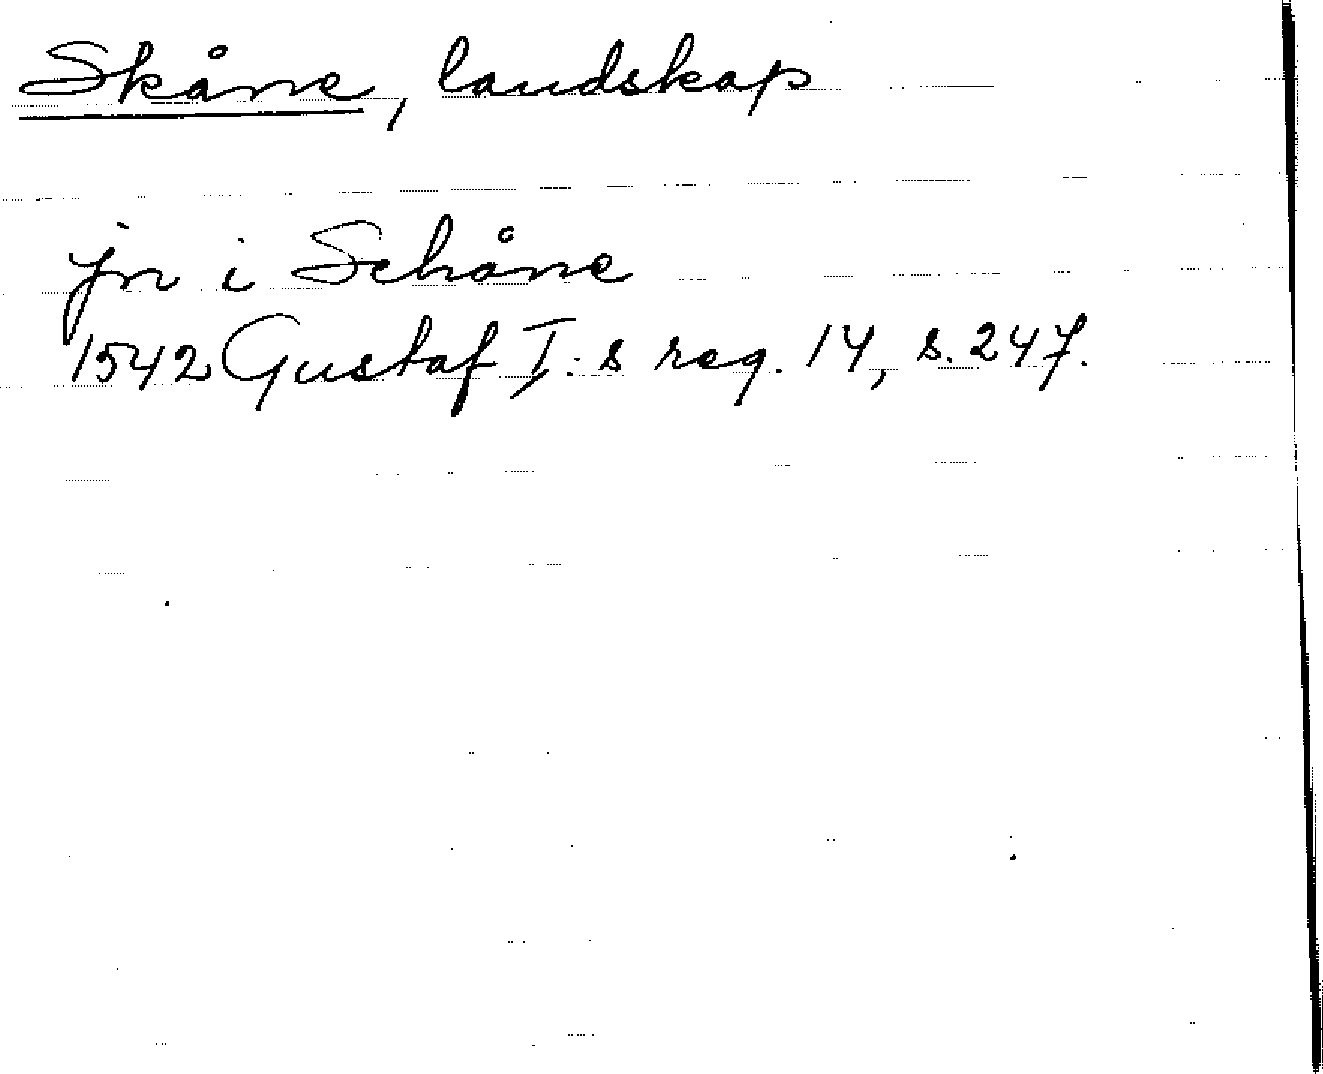 Skåne, landskap
jn i Schåne
1542 Gustaf I:s reg. 14, s. 247.